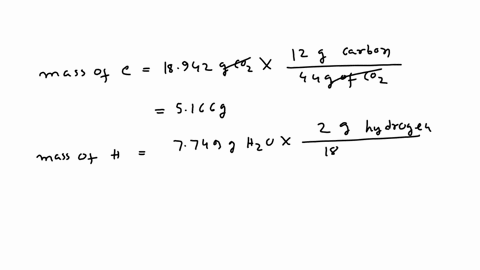 mass of C = 18.942 g CO₂ × 12 g carbon / 44 g of CO₂
= 5.166g
mass of H = 7.749 g H₂O × 2 g hydrogen / 18